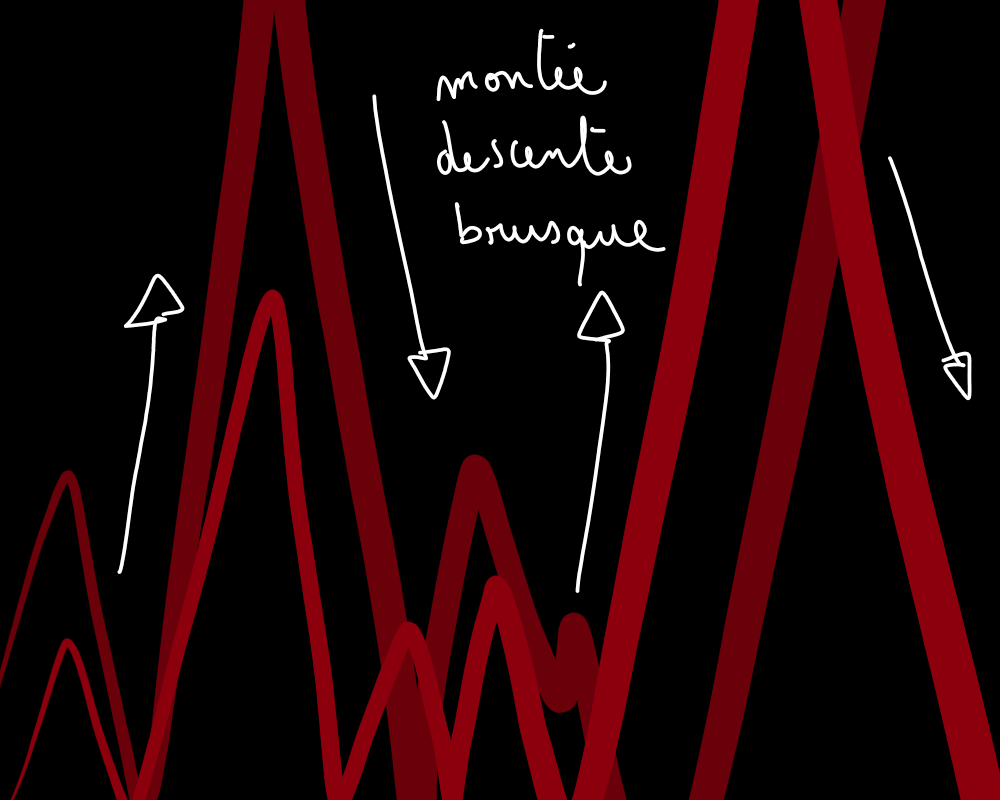 montée
descente
brusque